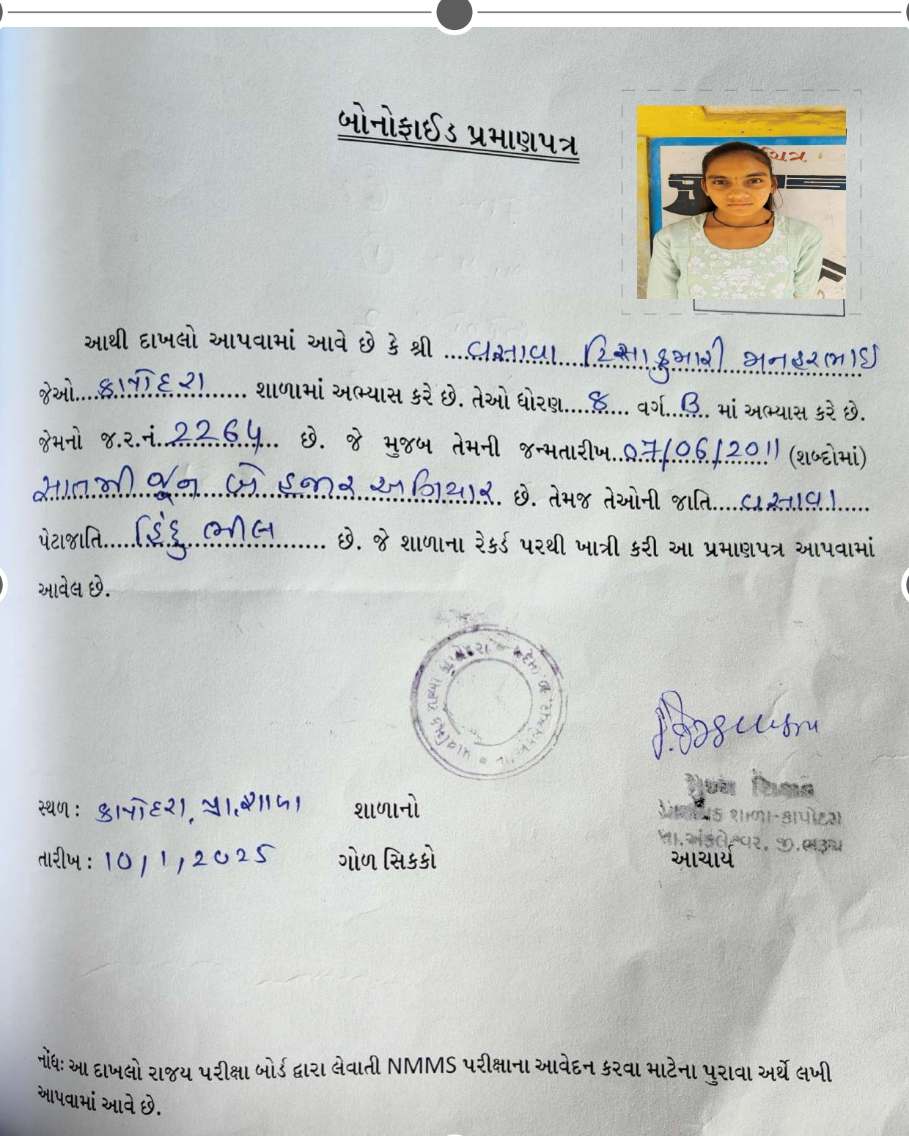 બોનોફાઈડ પ્રમાણપત્ર
ચિત્ર
આથી દાખલો આપવામાં આવે છે કે શ્રી ....વસાવા...દિક્ષાકુમારી મનહરભાઈ
જેઓ....કાપોદરા...... શાળામાં અભ્યાસ કરે છે. તેઓ ધોરણ....8.... વર્ગ..B... માં અભ્યાસ કરે છે.
જેમનો જ.ર.નં..2264... છે. જે મુજબ તેમની જન્મતારીખ..07/06/2011 (શબ્દોમાં)
સાતમી જૂન બે હજાર અગિયાર. છે. તેમજ તેઓની જાતિ....વસાવા.....
પેટાજાતિ....હિંદુ ભીલ....... છે. જે શાળાના રેકર્ડ પરથી ખાત્રી કરી આ પ્રમાણપત્ર આપવામાં
આવેલ છે.
સ્થળ : કાપોદરા, પ્રા.શાળા શાળાનો
તારીખ : 10/1/2025 ગોળ સિકકો
મુખ્ય શિક્ષક
પ્રાથમિક શાળા-કાપોદરા
તા.અંકલેશ્વર, જી.ભરૂચ
આચાર્ય
નોંધઃ આ દાખલો રાજય પરીક્ષા બોર્ડ દ્વારા લેવાતી NMMS પરીક્ષાના આવેદન કરવા માટેના પુરાવા અર્થે લખી
આપવામાં આવે છે.